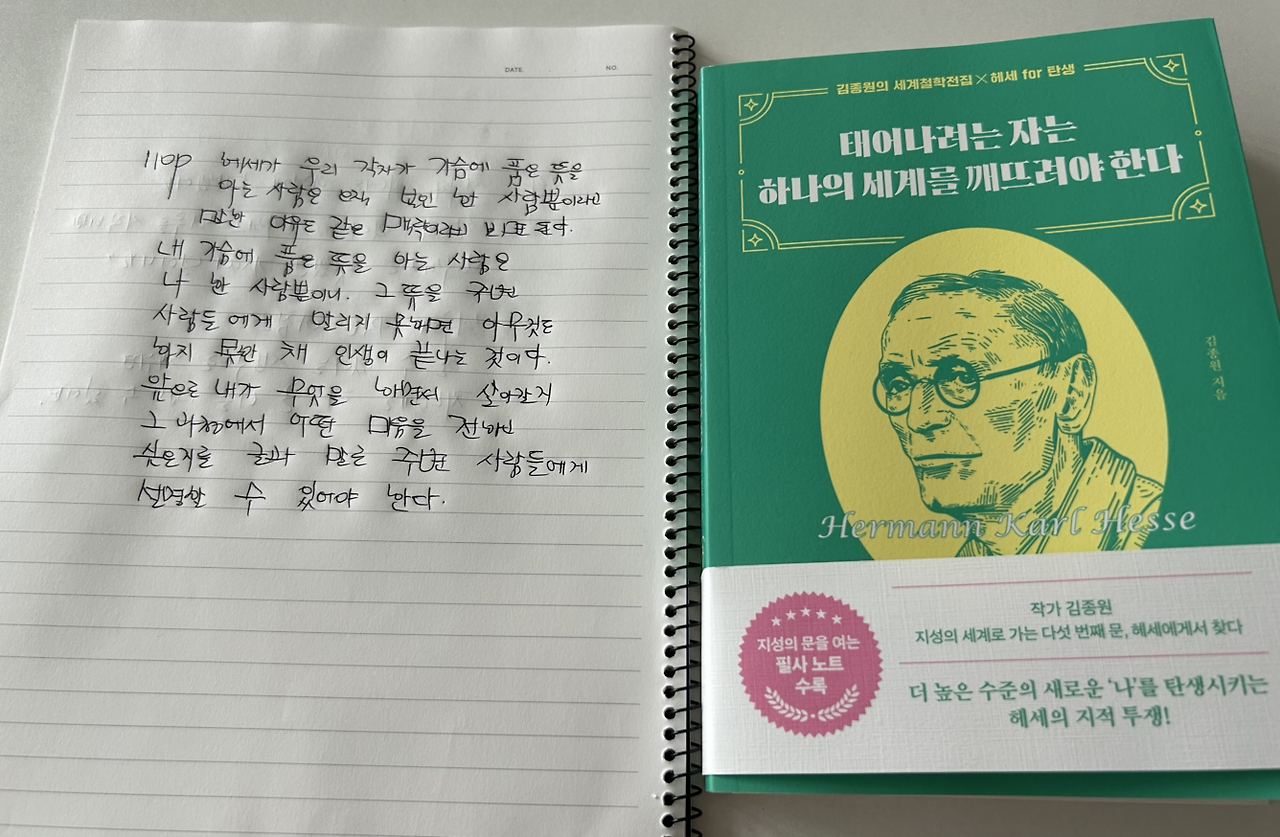 DATE. NO.
110p 헤세가 우리 각자가 가슴에 품은 뜻을
아는 사람은 오직 본인 한 사람뿐이라고
말한 이유도 같은 맥락이라고 보면 된다.
내 가슴에 품은 뜻을 아는 사람은
나 한 사람뿐이니. 그 뜻을 주변
사람들에게 알리지 못하면 아무것도
하지 못한 채 인생이 끝나는 것이다.
앞으로 내가 무엇을 하면서 살아갈지
그 과정에서 어떤 마음을 전하고
싶은지를 글과 말로 주변 사람들에게
설명할 수 있어야 한다.
김종원의 세계철학전집×헤세 for 탄생
태어나려는 자는
하나의 세계를 깨뜨려야 한다
김종원 지음
Hermann Karl Hesse
지성의 문을 여는
필사 노트
수록
작가 김종원
지성의 세계로 가는 다섯 번째 문, 헤세에게서 찾다
더 높은 수준의 새로운 '나'를 탄생시키는
헤세의 지적 투쟁!